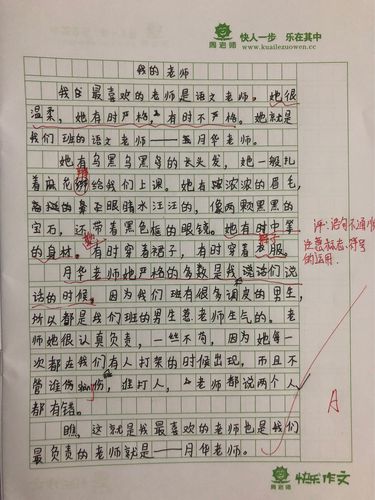 周老师
快人一步 乐在其中
www.kuailezuowen.cc
我的老师
我的最喜欢的老师是语文老师。她很
温柔，她有时严格，有时不严格。她就是
我们班的语文老师——月华老师。
她有乌黑乌黑的长头发，她一般扎
着麻花辫给我们上课。她有浓浓的眉毛，
眼睛水汪汪的，像两颗黑黑的
宝石，还带着黑色框的眼镜。她有时中等
的身材。有时穿着裙子，有时穿着衣服。
裤子
月华老师她严格的多数是我 们说
话的时候。因为我们班有很多调皮的男生，
所以都是我们班的男生惹老师生气的。老
师她很认真负责，一丝不苟，因为她每一
次都在我们有人打架的时候出现，而且不
管谁伤 伤，谁打人，老师都说两个人
都有错。
瞧，这就是我最喜欢的老师也是我们
最负责的老师就是——月华老师。
评：语句不通顺
注意标点符号
的运用。
A
快乐作文